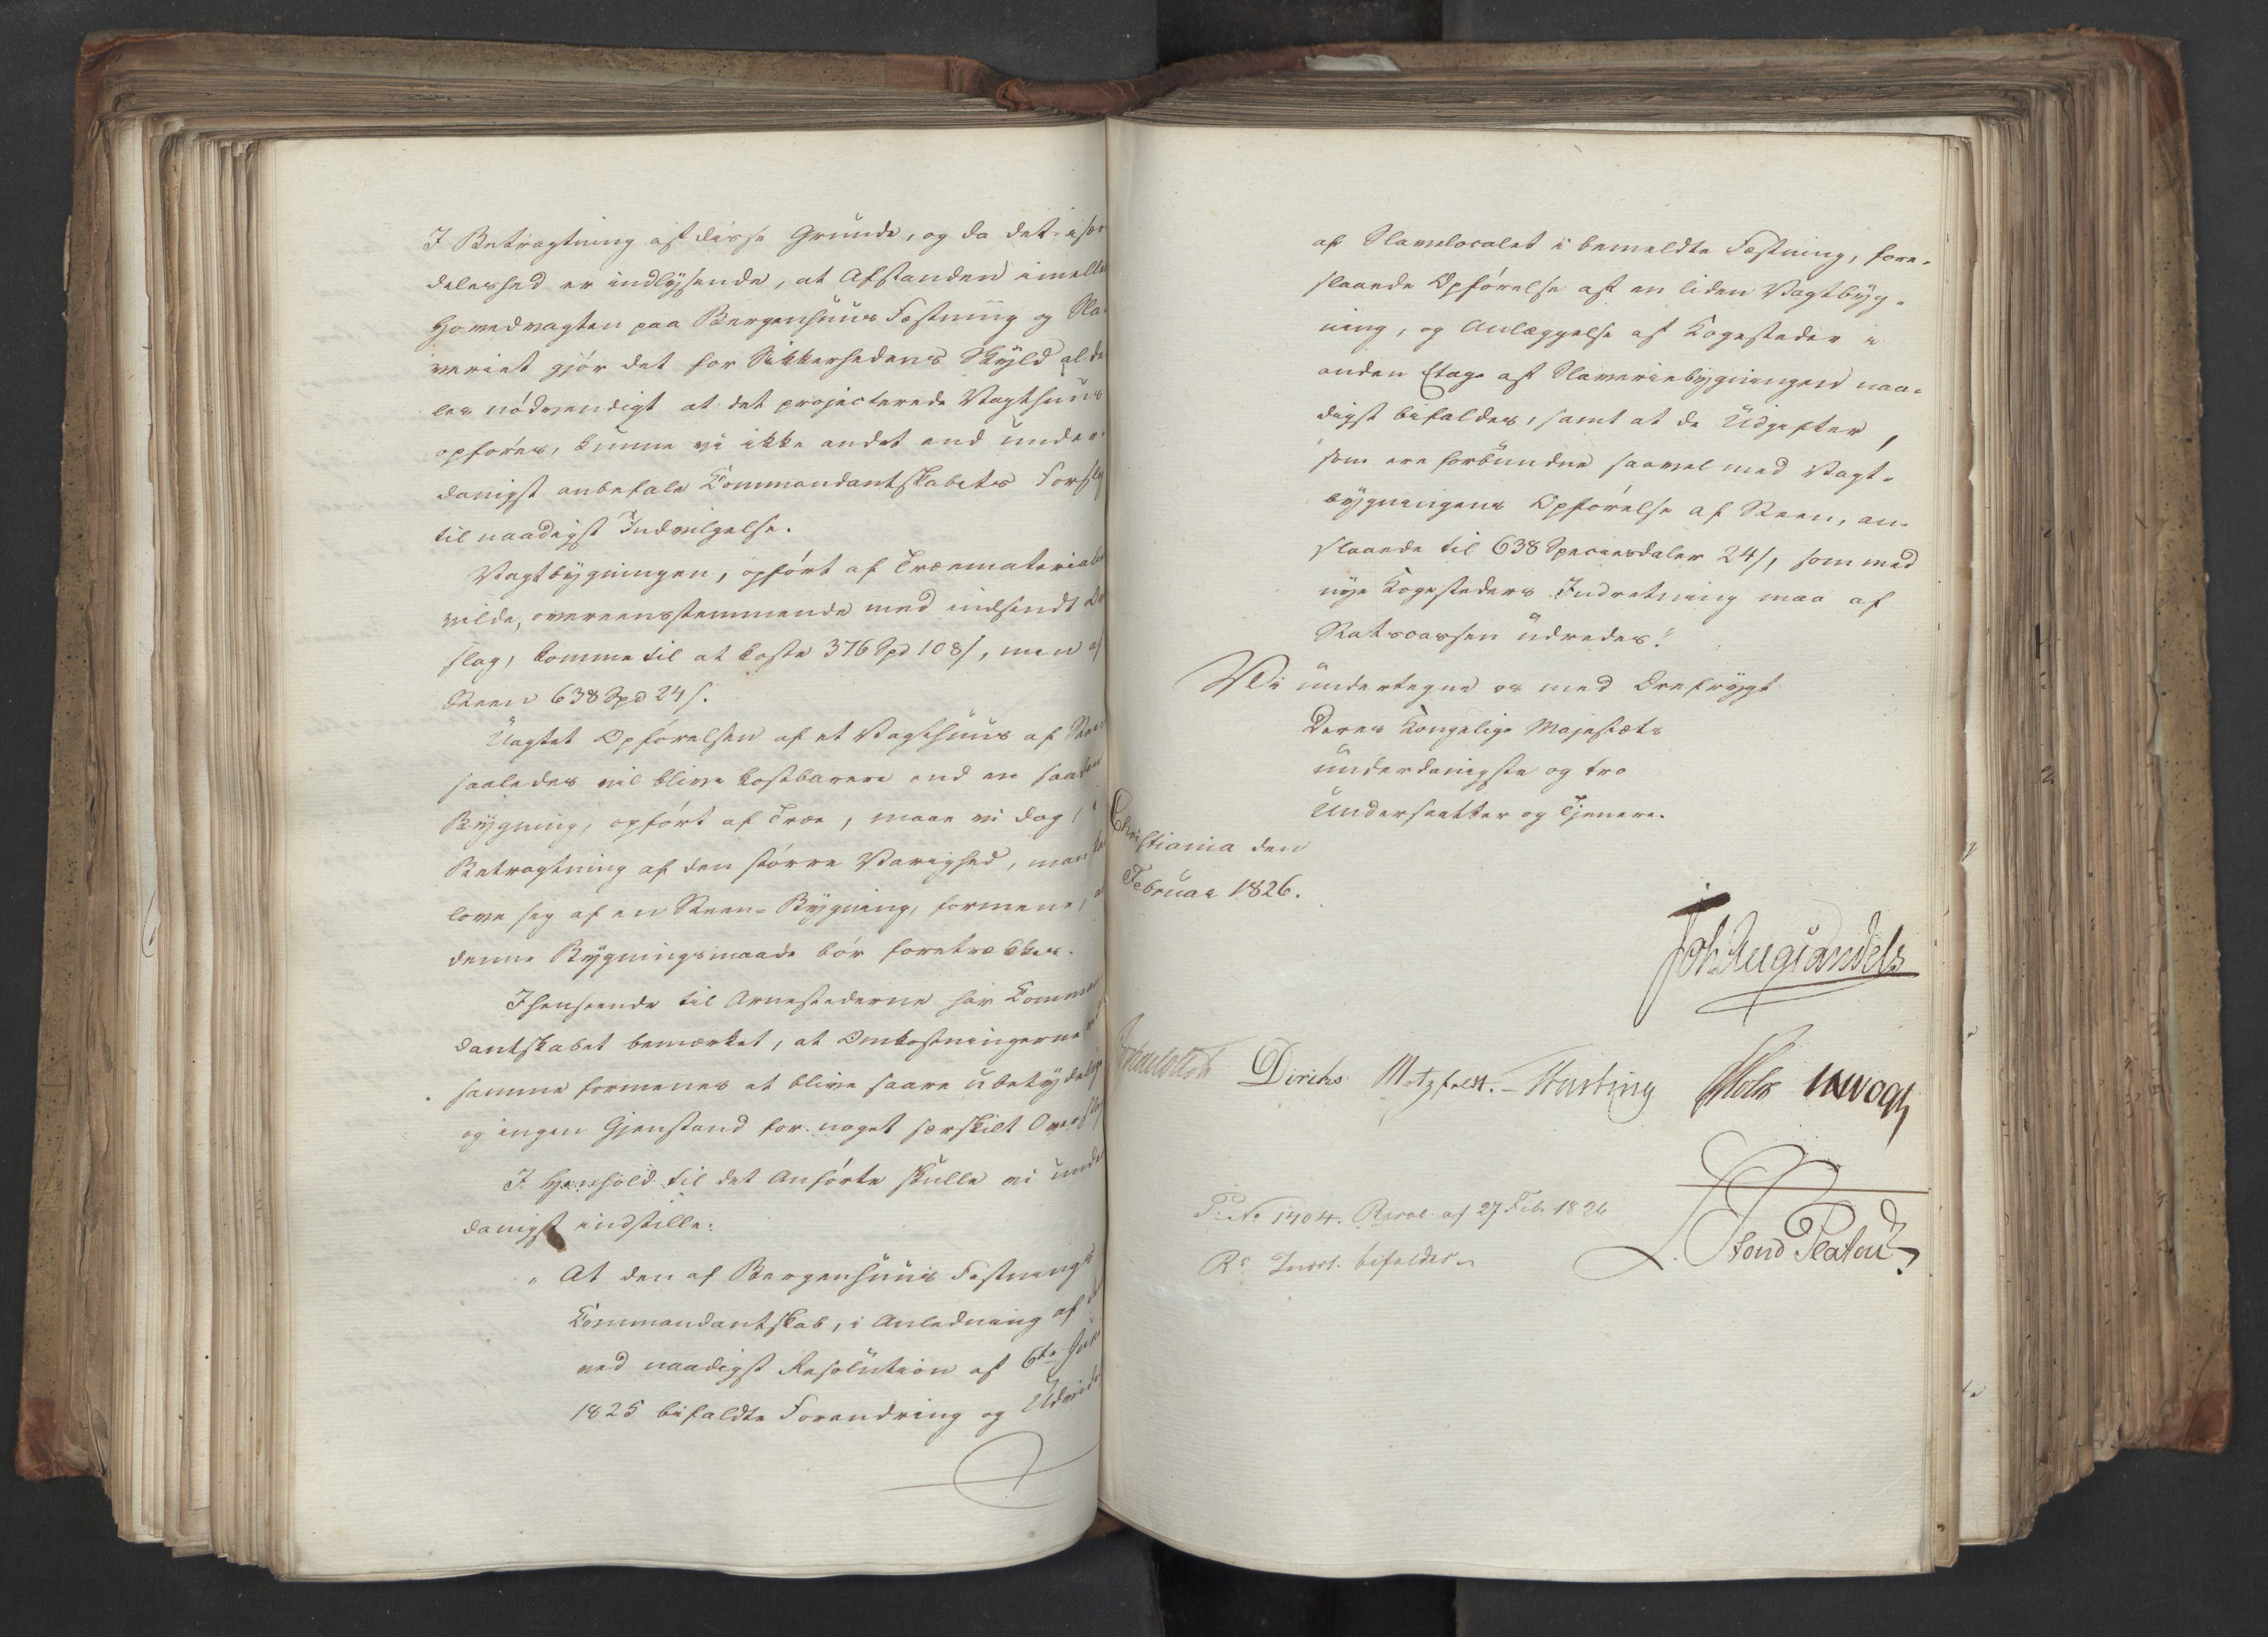 I Betragtning af disse Grunde, og da det især-
deleshed er indlysende, at Afstanden imellem
Hovedvagten paa Bergenhuus Fæstning og Sla-
veriet gjør det for Sikkerhedens Skyld alde-
les nødvendigt at det projecterede Vagthuus
opføres, kunne vi ikke andet end under-
danigst anbefale Commandantskabets Forslag
til naadigst Indvilgelse.
Vagtbygningen, opført af Træematerialer
vilde, overeensstemmende med indsendt Over-
slag, komme til at koste 376 Spd 108 s, men af
Steen 638 Spd 24 s.
Uagtet Opførelsen af et Vagthuus af Steen
saaledes vil blive kostbarere end en saadan
Bygning, opført af Træe, maae vi dog, i
Betragtning af den større Varighed, man kan
love sig af en Steen-Bygning, formene, at
denne Bygningsmaade bør foretrækkes.
Ihenseende til Arnestederne har Comman-
dantskabet bemærket, at Omkostningerne ved
samme formenes at blive saare ubetydelige
og ingen Gjenstand for noget særskilt Overslag
I Henhold til det Anførte skulle vi under-
danigst indstille:
"At den af Bergenhuus Fæstnings
Commandantskab, i Anledning af den
ved naadigst Resolution af 6te Juni
1825 bifaldte Forandring og Udvidelse
af Slavelocalet i bemeldte Fæstning, fore-
slaaede Opførelse af en liden Vagtbyg-
ning, og Anlæggelse af Kogesteder i
anden Etage af Slaveriebygningen naa-
digst bifaldes, samt at de Udgifter,
som ere forbundne saavel med Vagt-
bygningens Opførelse af Steen, an-
slaaede til 638 Speciesdaler 24 s, som med
nye Kogesteders Indretning maa af
Statscassen udredes."
Vi undertegne os med Ærefrygt
Deres Kongelige Majestæts
underdanigste og tro
Undersaatter og Tjenere.
Christiania den
Februar 1826.
Joh. Aug. Sandels
Diriks Motzfeldt. Fasting Holst JHVogt
L. Stoud Platou
P. No 1404. Resol. af 27 Feb. 1826
Rs Indst. bifaldes.